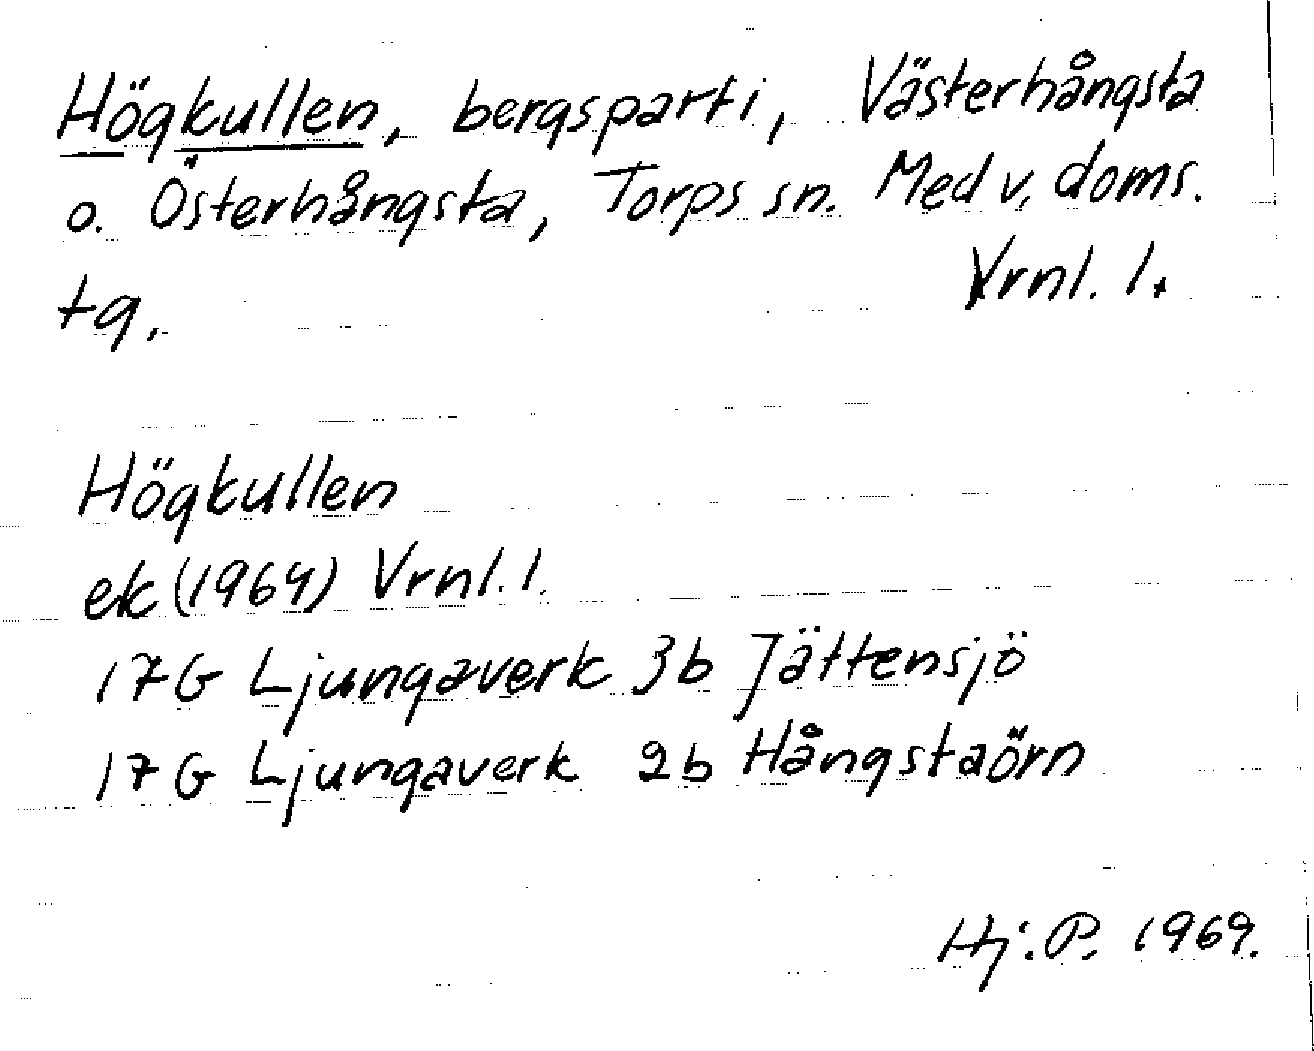 Högkullen, bergsparti, Västerhångsta
o. Österhångsta, Torps sn. Med v. doms.
tg. Vrnl. l.
Högkullen
ek (1964) Vrnl. l.
17G Ljungaverk 3b Jättensjö
17G Ljungaverk 2b Hångstaörn
Hj. P. 1969.